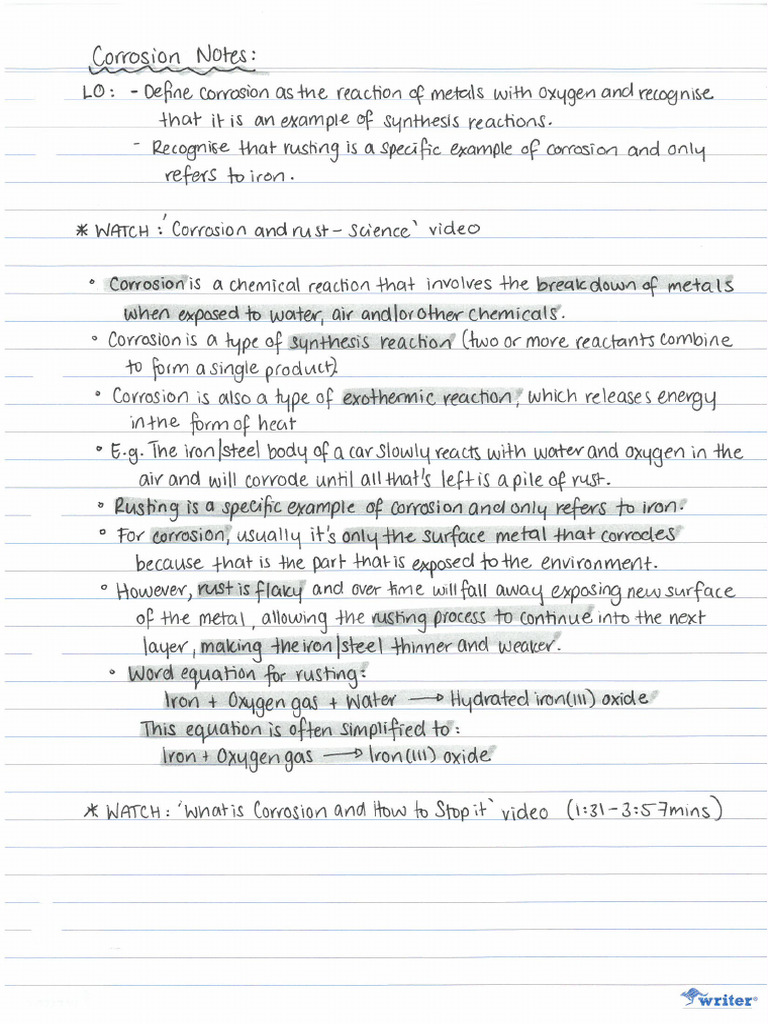 Corrosion Notes:
LO: - Define corrosion as the reaction of metals with oxygen and recognise
that it is an example of synthesis reactions.
- Recognise that rusting is a specific example of corrosion and only
refers to iron.
* WATCH: 'Corrosion and rust - science' video
• Corrosion is a chemical reaction that involves the breakdown of metals
when exposed to water, air and/or other chemicals.
• Corrosion is a type of synthesis reaction (two or more reactants combine
to form a single product).
• Corrosion is also a type of exothermic reaction, which releases energy
in the form of heat
• E.g. The iron/steel body of a car slowly reacts with water and oxygen in the
air and will corrode until all that's left is a pile of rust.
• Rusting is a specific example of corrosion and only refers to iron.
• For corrosion, usually it's only the surface metal that corrodes
because that is the part that is exposed to the environment.
• However, rust is flaky and over time will fall away exposing new surface
of the metal, allowing the rusting process to continue into the next
layer, making the iron/steel thinner and weaker.
• Word equation for rusting:
Iron + Oxygen gas + Water → Hydrated iron(III) oxide
This equation is often simplified to:
Iron + Oxygen gas → Iron(III) oxide
* WATCH: 'What is Corrosion and How to Stop it' video (1:31-3:57mins)
writer®